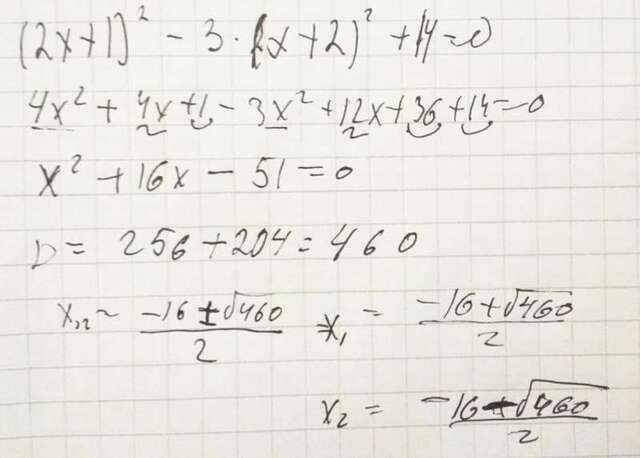 (2x+1)² - 3·(x+2)² + 14 = 0
4x² + 4x + 1 - 3x² + 12x + 36 + 14 = 0
x² + 16x - 51 = 0
D = 256 + 204 = 460
x₁,₂ = (-16 ± √460)/2 x₁ = (-16 + √460)/2
x₂ = (-16 - √460)/2